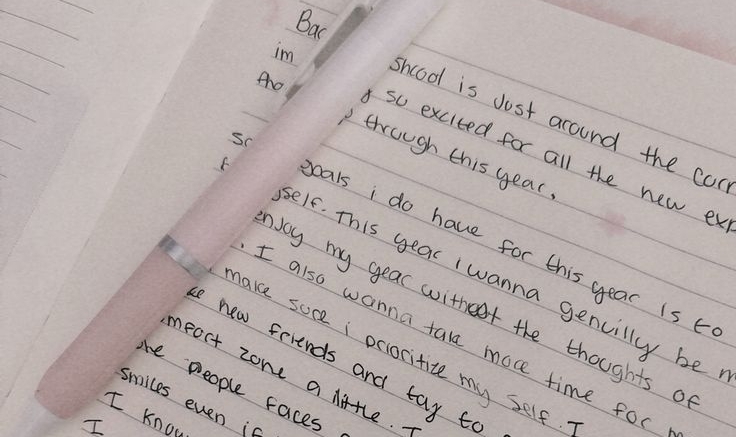 shcool is Just around the corn
im so excited for all the new exp
through this year.
goals i do have for this year is to
self. This year i wanna genuilly be m
enjoy my year without the thoughts of
I also wanna take more time for m
make sure i prioritize my self. I
new friends and tay to
mfort zone a little. I
people faces
smiles even if
I know
I